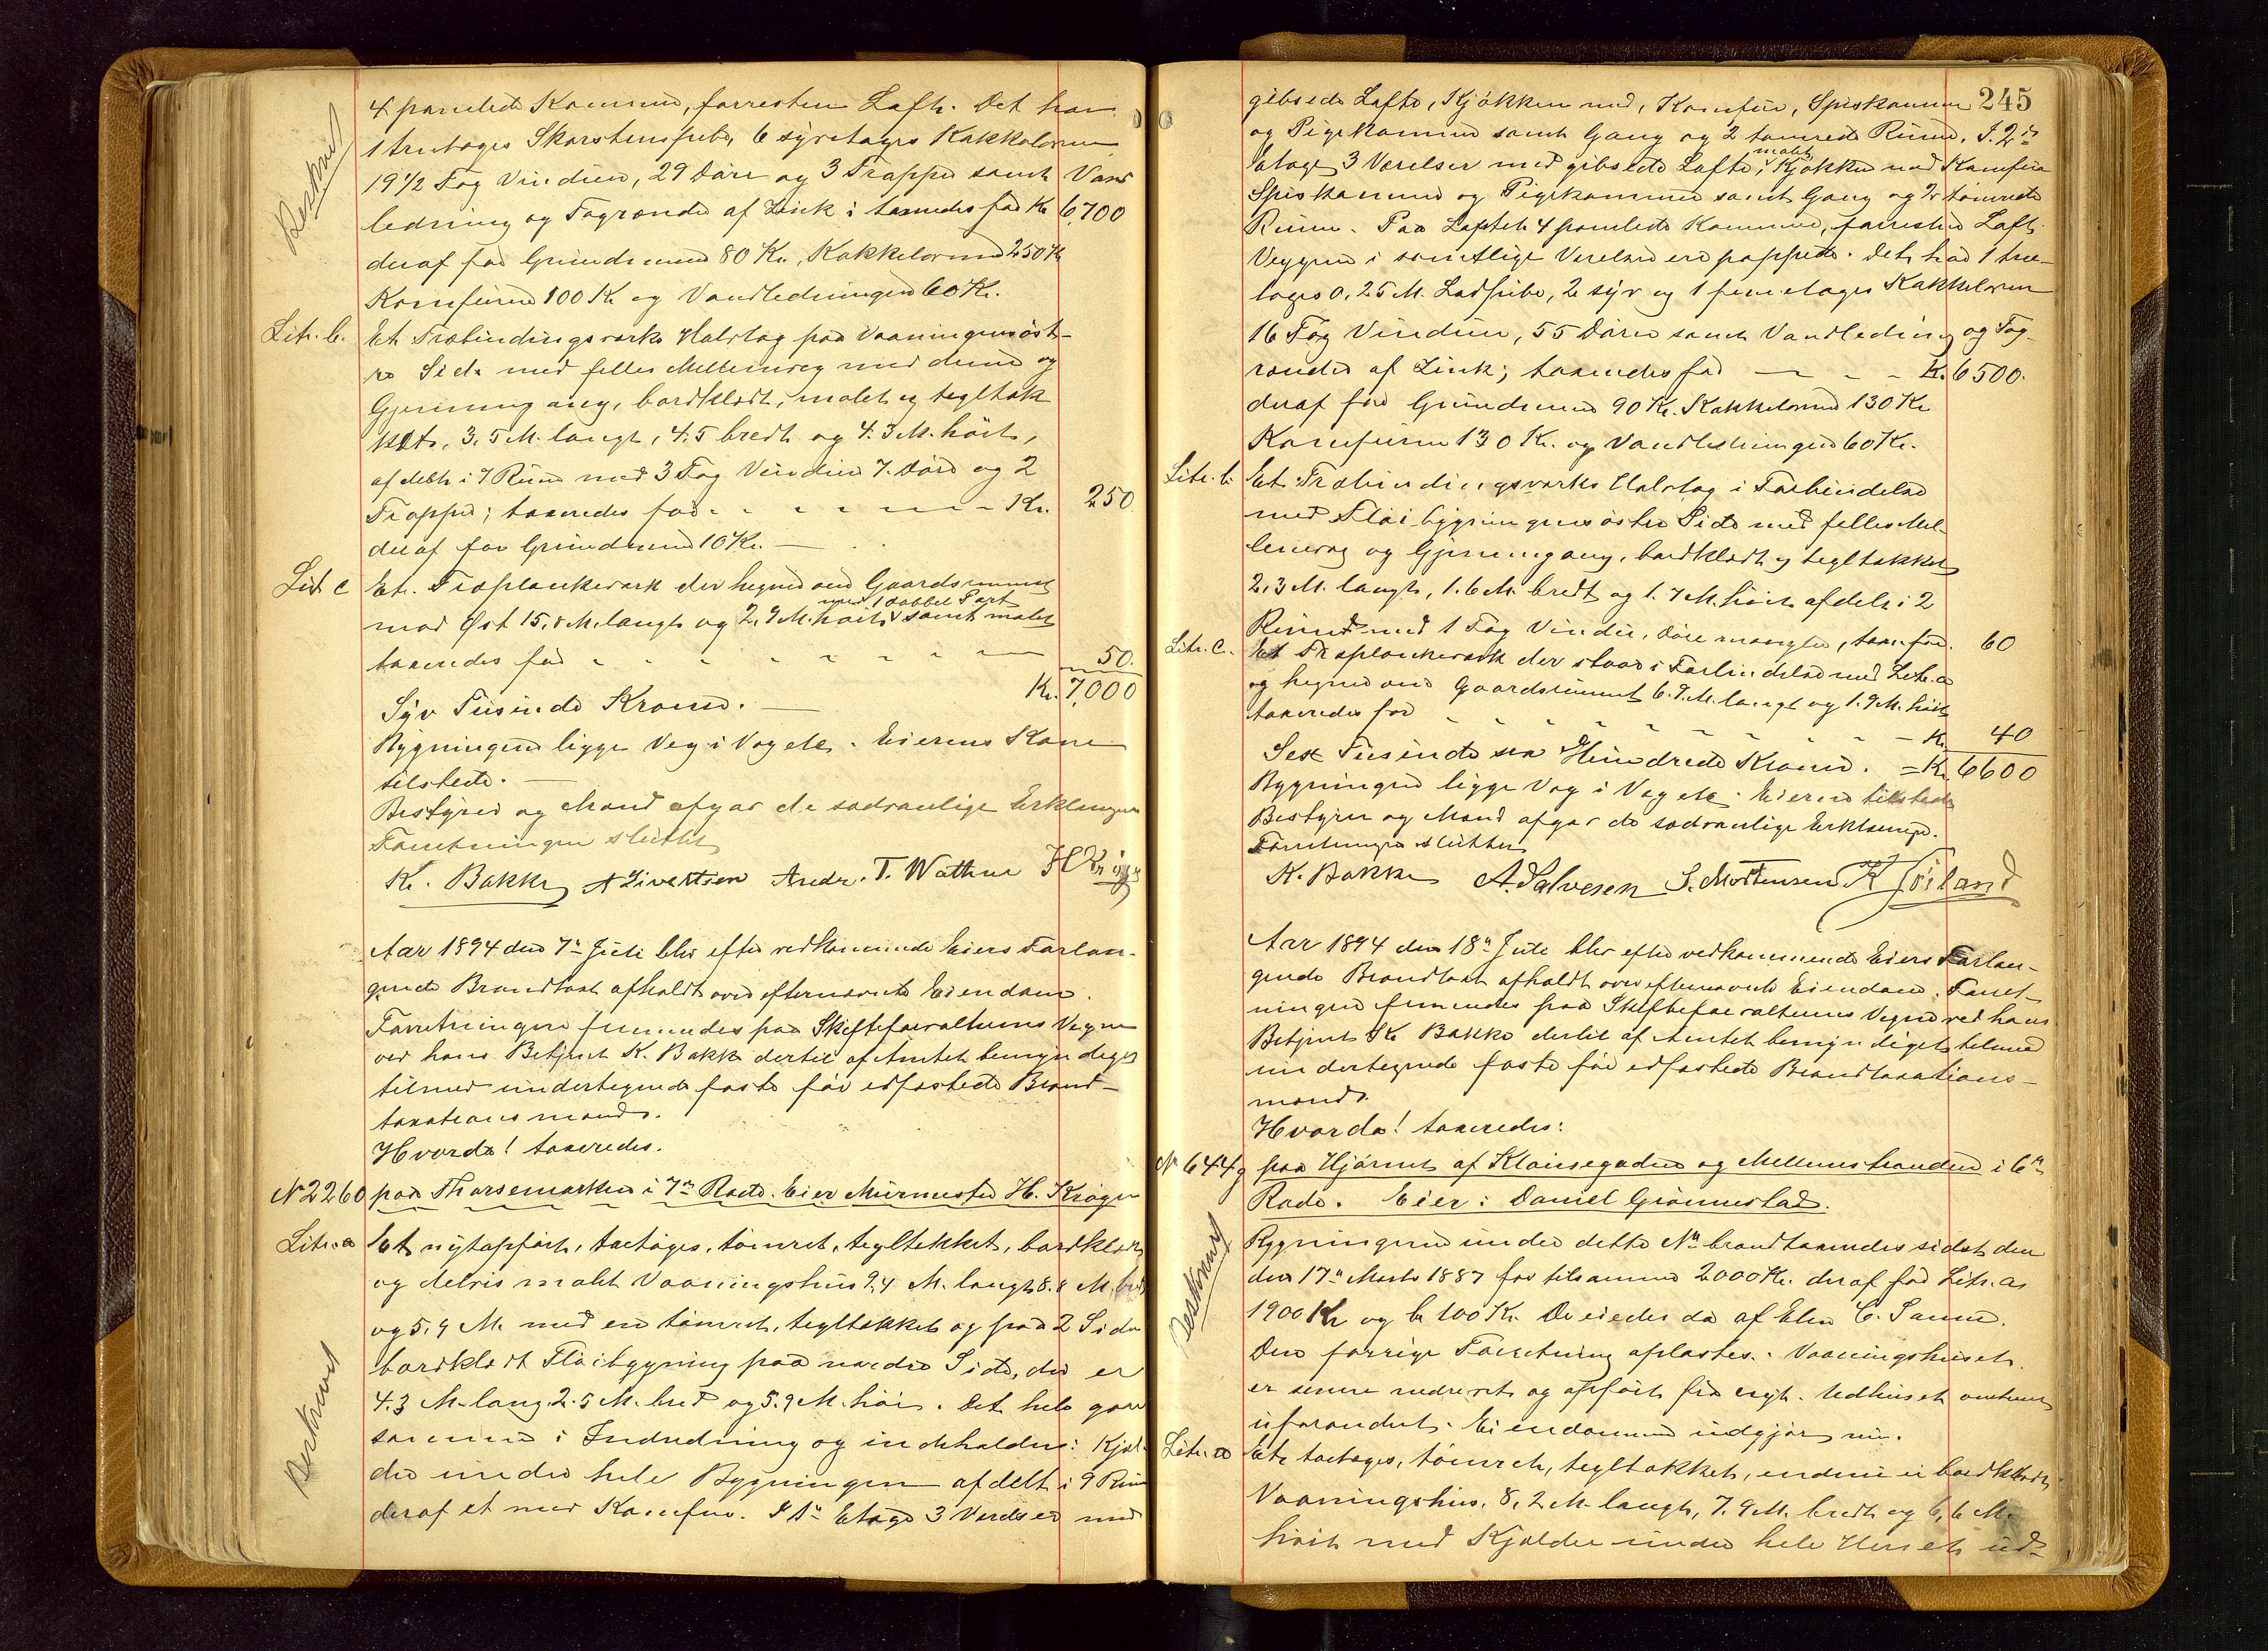 Beskreved
4 panelede Kammere, forresten Loft. Det har
1 treetages Skorstenspibe, 6 syvetages Kakkelovne
19 1/2 Fag Vinduer, 29 Døre og 3 Trapper samt Vand
ledning og Tagrender af Zink i taxeredes for Kr. 6,700
deraf for Grundmuren 80 Kr., Kakkelovnene 250 Kr
Komfurene 100 Kr og Vandledningen 60 Kr.
Litr. b. Et Træbindingsværks Halvtag paa Vaaningens øst-
re Side med felles Mellemvæg med denne og
Gjennemgang, bordklædt, malet og tegltæk
ket, 3,5 M. langt, 4,5 bredt og 4.3 M. høit,
afdelt i 7 Rum med 3 Fag Vinduer 7. Døre og 2
Trapper; taxeredes for - - - - - Kr. 250
deraf for Grundmuren 10 Kr. —
Lit c Et Træplankeværk der hegner om Gaardsrummet
med 1 dobbel Port
mod Øst 15,8 M. langt og 2,9 M. høit samt malet
taxeredes for - - - - - - 50.
Syv Tusinde Kroner. — Kr. 7,000
Bygningen ligge Veg i Veg etc. Eierens Kone
tilstede. —
Bestyrer og Mænd afgav de sædvanlige Erklæringer
Forretningen sluttet
K. Bakke A Sivertsen Andr. T. Wathne H Krüger
Aar 1894 den 7de Juli blev efter vedkommende Eiers Forlan-
gende Brandtaxt afholdt over efternævnte Eiendom.
Forretningen fremmedes paa Skifteforvalterens Vegne
ved hans Betjent K. Bakke dertil af Amtet bemyndiget
tilmed undertegnede faste før edfæstede Brand-
taxationsmænd.
Hvorda! taxeredes.
No 2260 paa Thorsemarken i 7de Rode. Eier Murmester H. Krøger
Litr. a Et nytopført, toetages, tømret, tegltekket, bordklædt
og delvis malet Vaaningshus 9,4 M. langt 8.8 M. bredt
og 5,9 M. med en tømret, tegltækket og paa 2 Sider
bordklædt Fløibygning paa nordre Side, der er
4.3 M. lang 2.5 M. bred og 5.9 M. høi. Det hele gaar
sammen i Indredning og indeholder: Kjæl-
der under hele Bygningen afdelt i 9 Rum
deraf et med Komfur. I 1ste Etage 3 Værelser med
Beskreved
245
gibsede Lofte, Kjøkken med, Komfur, Spiskammer
og Pigekammer samt Gang og 2 tømrede Rum. I 2den
Etage 3 Værelser med gibsede Lofte, malet Kjøkken med Komfur
Spiskammer og Pigekammer samt Gang og 2 tømrede
Rum. Paa Loftet 4 panelede Kammere, forresten Loft.
Veggene i samtlige Værelser ere pappede. Det har 1 tre-
etages 0,25 M. Ladpibe, 2 syv og 1 femetages Kakkelovne
16 Fag Vinduer, 55 Døre samt Vandledning og Tag-
render af Zink; taxeredes for — - - Kr. 6500.
deraf for Grundmuren 90 Kr. Kakkelovnene 130 Kr
Komfurene 130 Kr. og Vandledningen 60 Kr.
Litr. b. Et Træbindingsværks Halvtag i Forbindelse
med Fløibygningens østre Side med felles Mel-
lemvæg og Gjennemgang, bordklædt og tegltækket
2,3 M. langt, 1.6 M. bredt og 1.7 M. høit afdelt i 2
Rum med 1 Fag Vinduer, Døre mangler, taxer. for. 60
Litr. c. Et Træplankeværk der staar i Forbindelse med Litr. a
og hegner om Gaardsrummet 6.9 M. langt og 1.9 M. høit
taxeredes for - - - - - - Kr. 40
Sex Tusinde sex Hundrede Kroner. = Kr. 6600
Bygningen ligge Veg i Veg etc. Eieren tilstede
Bestyrer og Mænd afgav de sædvanlige Erklæringer.
Forretningen sluttet
K. Bakke A. Salvesen S. Mortensen K Førland
Aar 1894 den 18de Juli blev efter vedkommende Eiers Forlan-
gende Brandtaxt afholdt over efternævnte Eiendom. Forret-
ningen fremmedes paa Skifteforvalterens Vegne ved hans
Betjent K. Bakke dertil af Amtet bemyndiget tilmed
undertegnede faste før edfæstede Brandtaxations-
mænd.
Hvorda! taxeredes:
No 644 g paa Hjørnet af Klausegaden og Mellemstranden i 6te
Rode. Eier: Daniel Grønnestad.
Beskreved
Bygningerne under dette No brandtaxeredes sidst den
den 17de Marts 1887 for tilsammen 2000 Kr. deraf for Litr. a
1900 Kr og b 100 Kr. De eiedes da af Elen C. Sanne.
Den forrige Forretning aflæstes. Vaaningshuset
er senere nedrevet og opført fra nyt. Udhuset omtrent
uforandret. Eiendommen udgjør nu.
Litr. a Et toetages, tømret, tegltækket, endnu ei bordklædt
Vaaningshus, 8,2 M. langt, 7.9 M. bredt og 6,6 M.
høit med Kjælder under hele Huset ud-